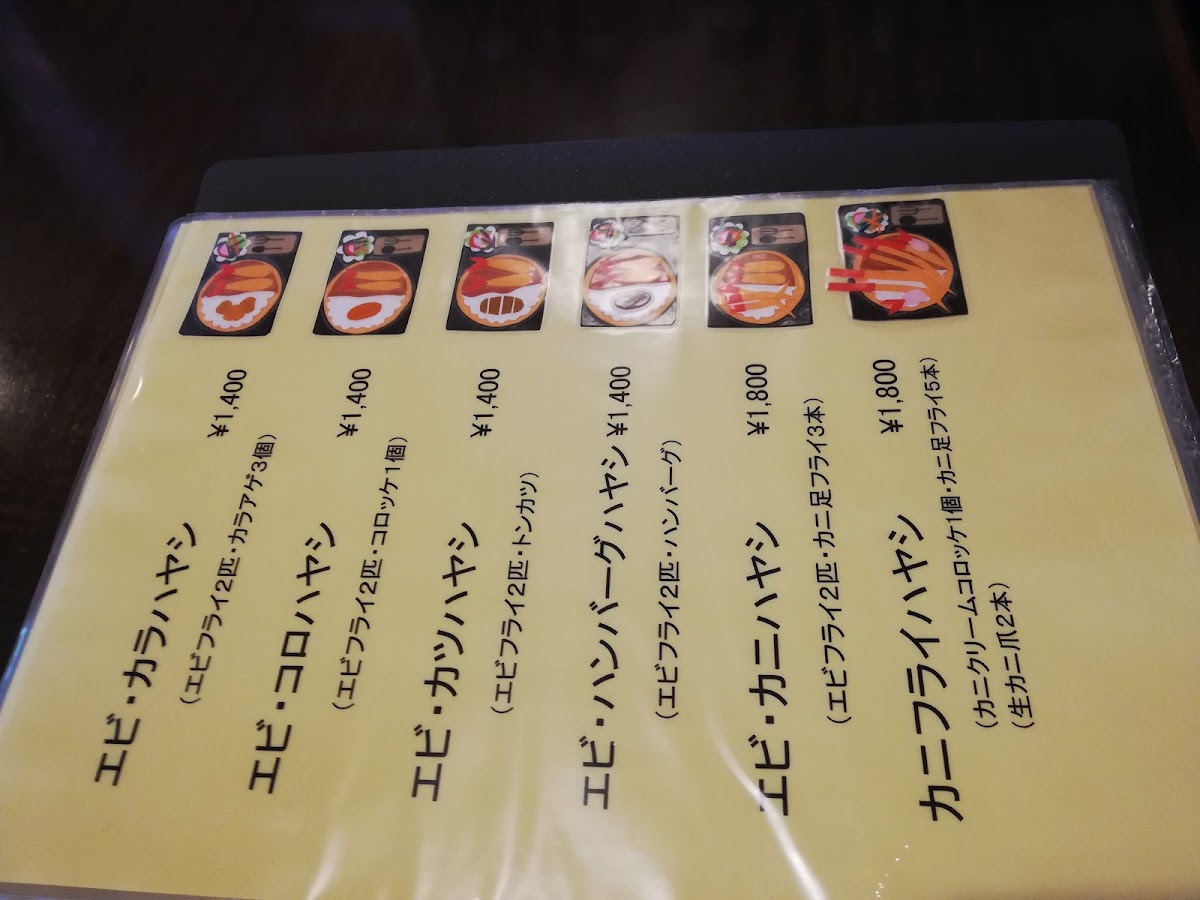 エビ・カラハヤシ ¥1,400
(エビフライ2匹・カラアゲ3個)
エビ・コロハヤシ ¥1,400
(エビフライ2匹・コロッケ1個)
エビ・カツハヤシ ¥1,400
(エビフライ2匹・トンカツ)
エビ・ハンバーグハヤシ ¥1,400
(エビフライ2匹・ハンバーグ)
エビ・カニハヤシ ¥1,800
(エビフライ2匹・カニ足フライ3本)
カニフライハヤシ ¥1,800
(カニクリームコロッケ1個・カニ足フライ5本)
(生カニ爪2本)